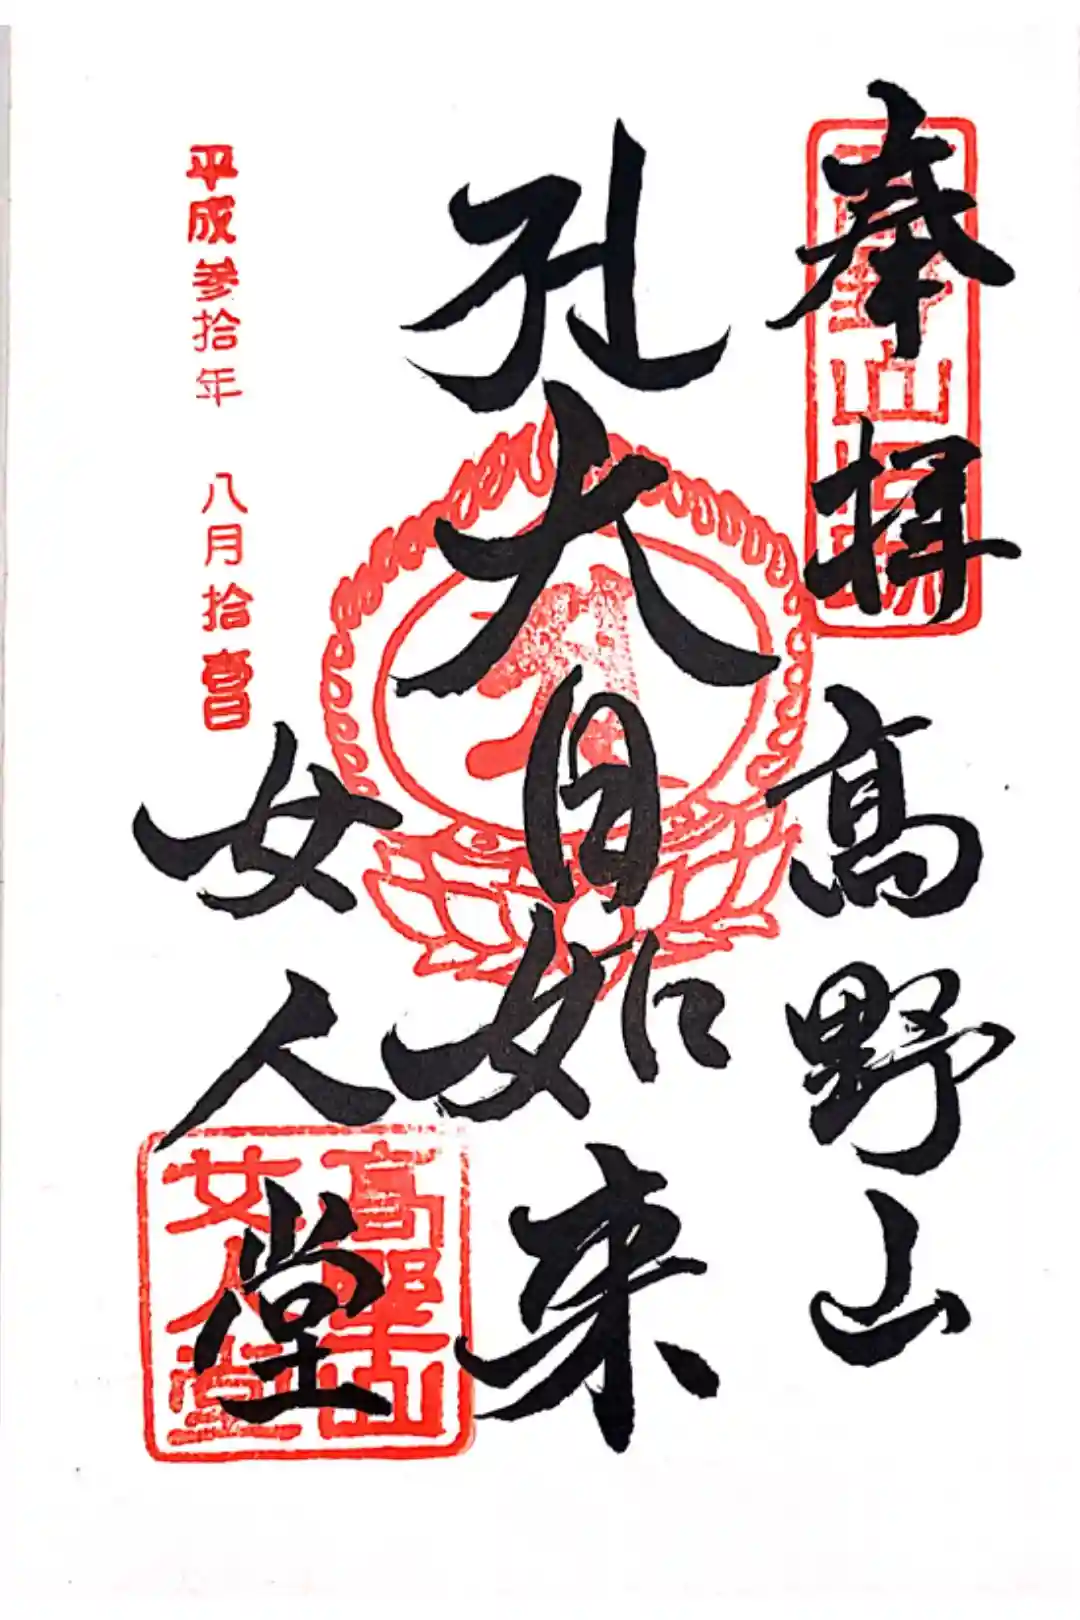 奉拝 高野山
孔大日如来
女人堂
平成参拾年 八月拾壹日
高野山
女人堂